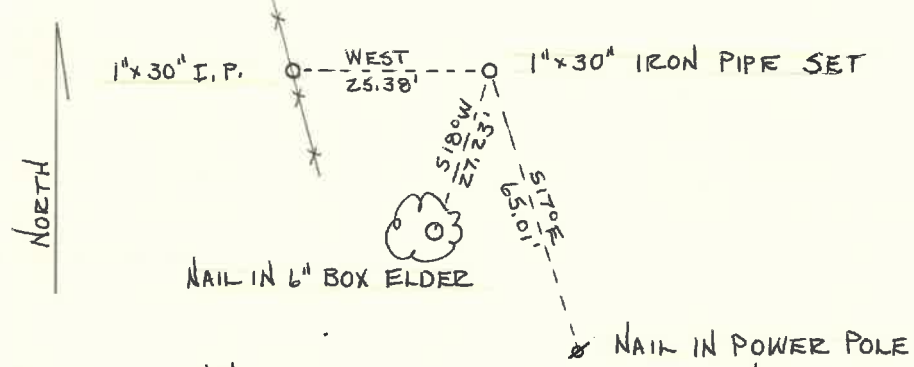 1"x 30" I.P.
WEST
25.38'
1"x 30" IRON PIPE SET
S18°W
27.23'
S17°E
65.01'
NORTH
NAIL IN 6" BOX ELDER
NAIL IN POWER POLE